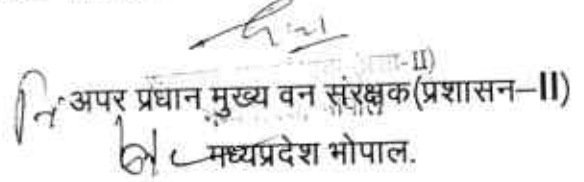 अपर प्रधान मुख्य वन संरक्षक(प्रशासन–II)
मध्यप्रदेश भोपाल.